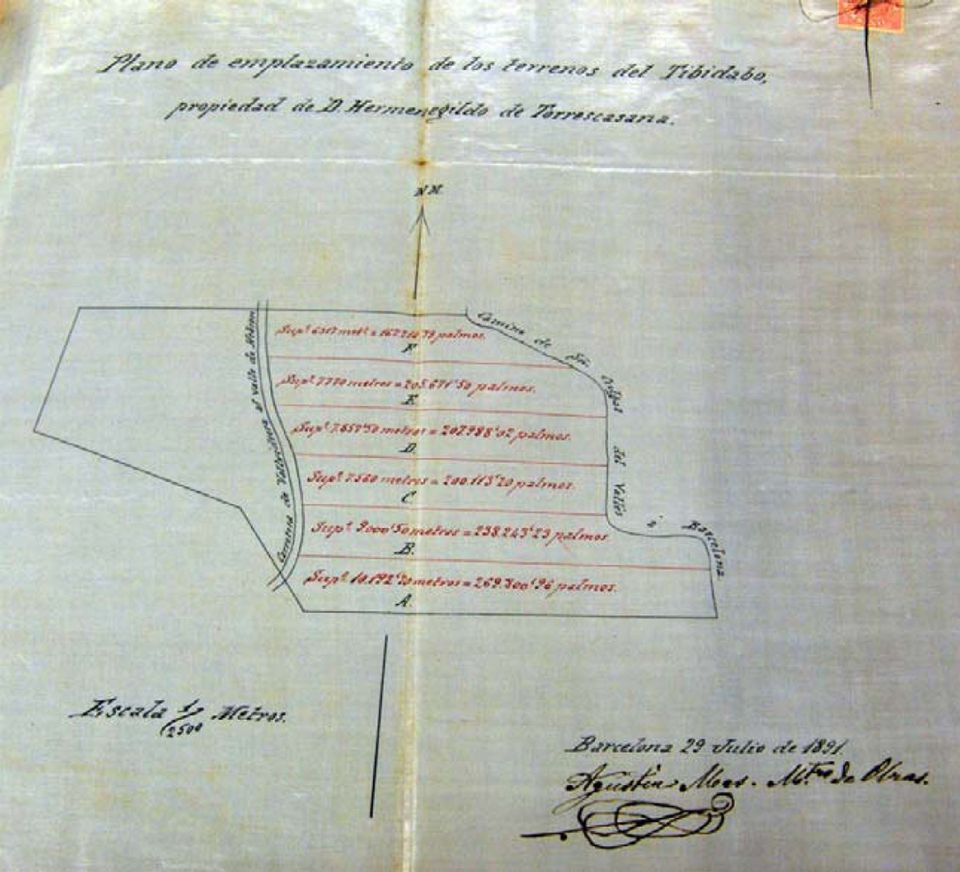 Plano de emplazamiento de los terrenos del Tibidabo,
propiedad de D. Hermenegildo de Torrescasana.
N.M.
Camino de Sn. Cugat del Vallés á Barcelona
Camino de Vallvidrera al valle de Hebron
Supe. 6317 mets. = 167.210'79 palmos.
F.
Supe. 7770 metros = 205.671'50 palmos.
E.
Supe. 7.857'50 metros = 207.988'02 palmos.
D.
Supe. 7.560 metros = 200.113'20 palmos.
C
Supe. 9.000'50 metros = 238.243'23 palmos.
B.
Supe. 10.192'20 metros = 269.800'96 palmos.
A.
Escala 1/2500 Metros.
Barcelona 29 Julio de 1891.
Agustin Mas. Mtro. de Obras.